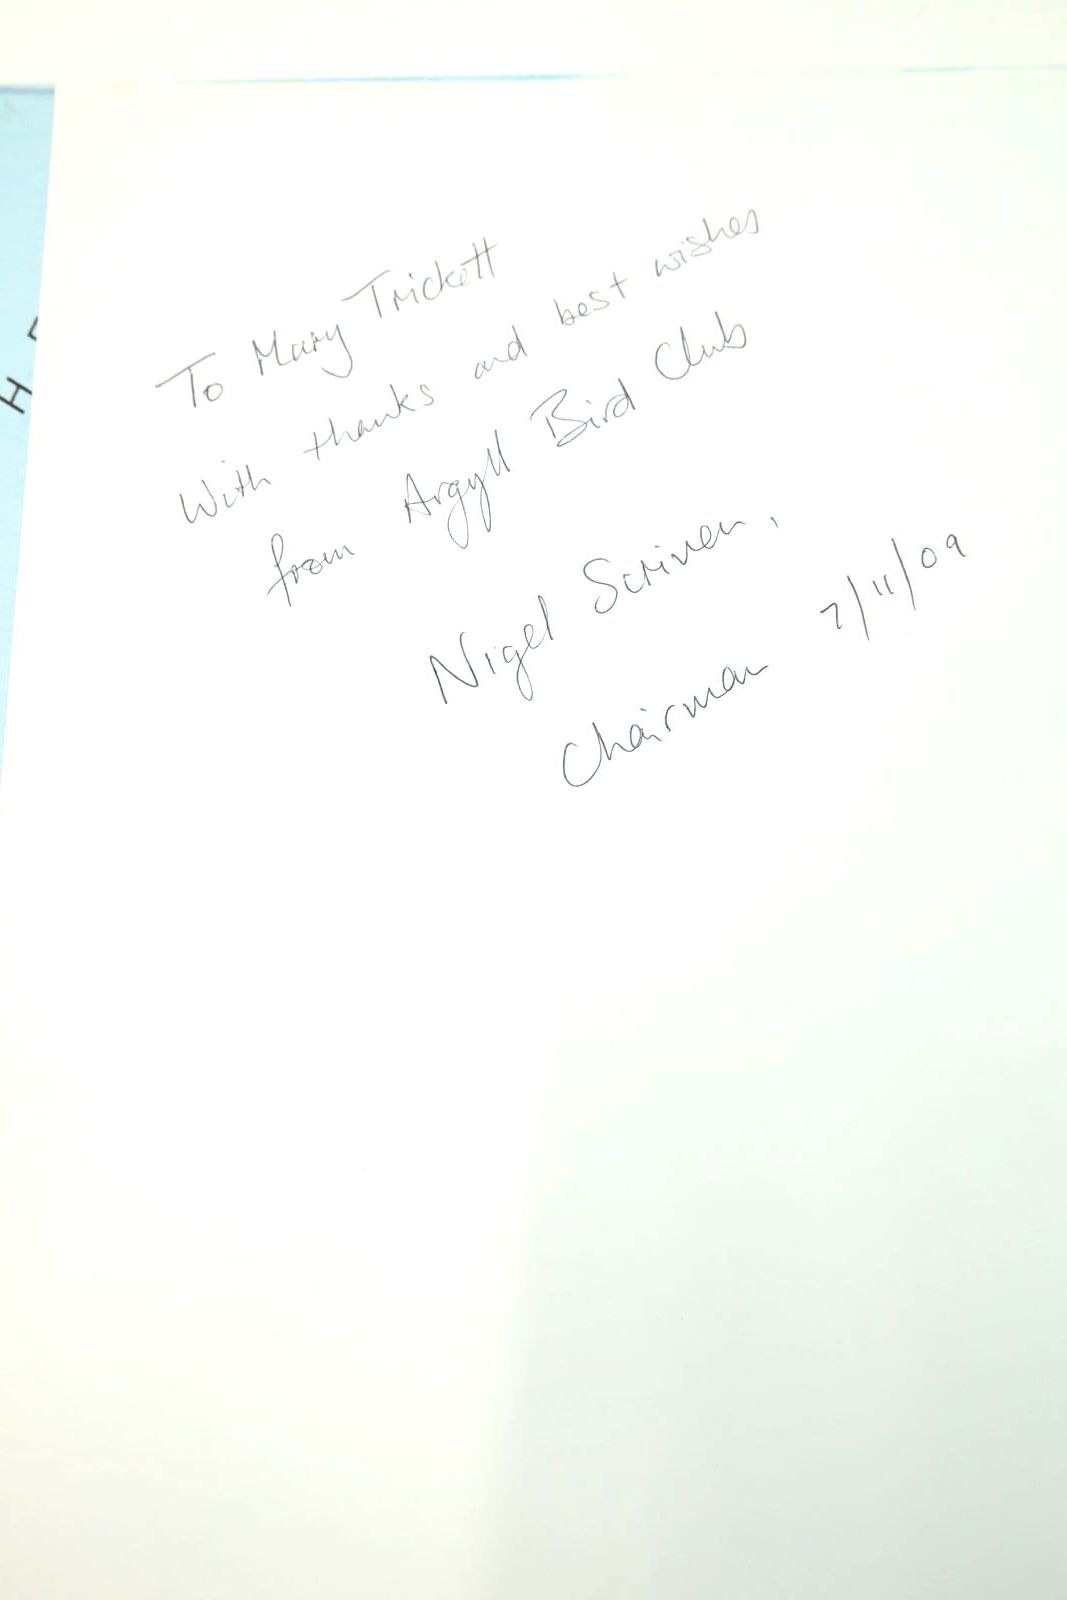 To Mary Trickett
With thanks and best wishes
from Argyll Bird Club
Nigel Scriven,
Chairman 7/11/09
H